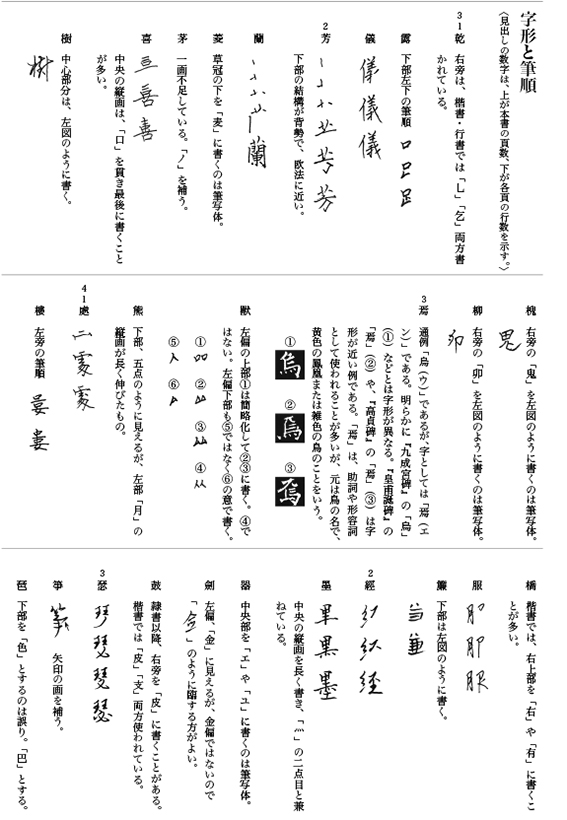 字形と筆順
〈見出しの数字は、上が本書の頁数、下が各頁の行数を示す。〉
31乾 右旁は、楷書・行書では「乚」「乞」両方書
かれている。
露 下部左下の筆順
儀
2芳 下部の結構が背勢で、欧法に近い。
蘭
菱 草冠の下を「麦」に書くのは筆写体。
茅 一画不足している。「ノ」を補う。
喜 中央の縦画は、「口」を貫き最後に書くこと
が多い。
樹 中心部分は、左図のように書く。
槐 右旁の「鬼」を左図のように書くのは筆写体。
柳 右旁の「卯」を左図のように書くのは筆写体。
3焉 通例「烏（ウ）」であるが、字としては「焉（エ
ン）」である。明らかに『九成宮碑』の「烏」
（①）などとは字形が異なる。『皇甫誕碑』の
「焉」（②）や、『高貞碑』の「焉」（③）は字
形が近い例である。「焉」は、助詞や形容詞
として使われることが多いが、元は鳥の名で、
黄色の鳳凰または雑色の鳥のことをいう。
① ② ③
獣 左偏の上部①は簡略化して②③に書く。④で
はない。左偏下部も⑤ではなく⑥の意で書く。
① ② ③ ④
⑤ ⑥
熊 下部、五点のように見えるが、左部「月」の
縦画が長く伸びたもの。
41處
樓 左旁の筆順
橋 楷書では、右上部を「右」や「有」に書くこ
とが多い。
服
簾 下部は左図のように書く。
2經
墨 中央の縦画を長く書き、「灬」の二点目と兼
ねている。
器 中央部を「エ」や「ユ」に書くのは筆写体。
劍 左偏、「金」に見えるが、金偏ではないので
「」のように臨する方がよい。
鼓 隷書以降、右旁を「皮」に書くことがある。
楷書では「皮」「支」両方使われている。
3瑟
箏 矢印の画を補う。
琶 下部を「色」とするのは誤り。「巴」とする。